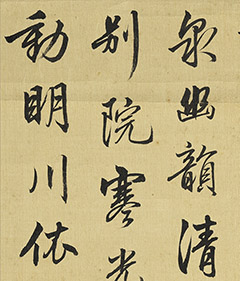 泉幽韻清
别院寒光
動明川依